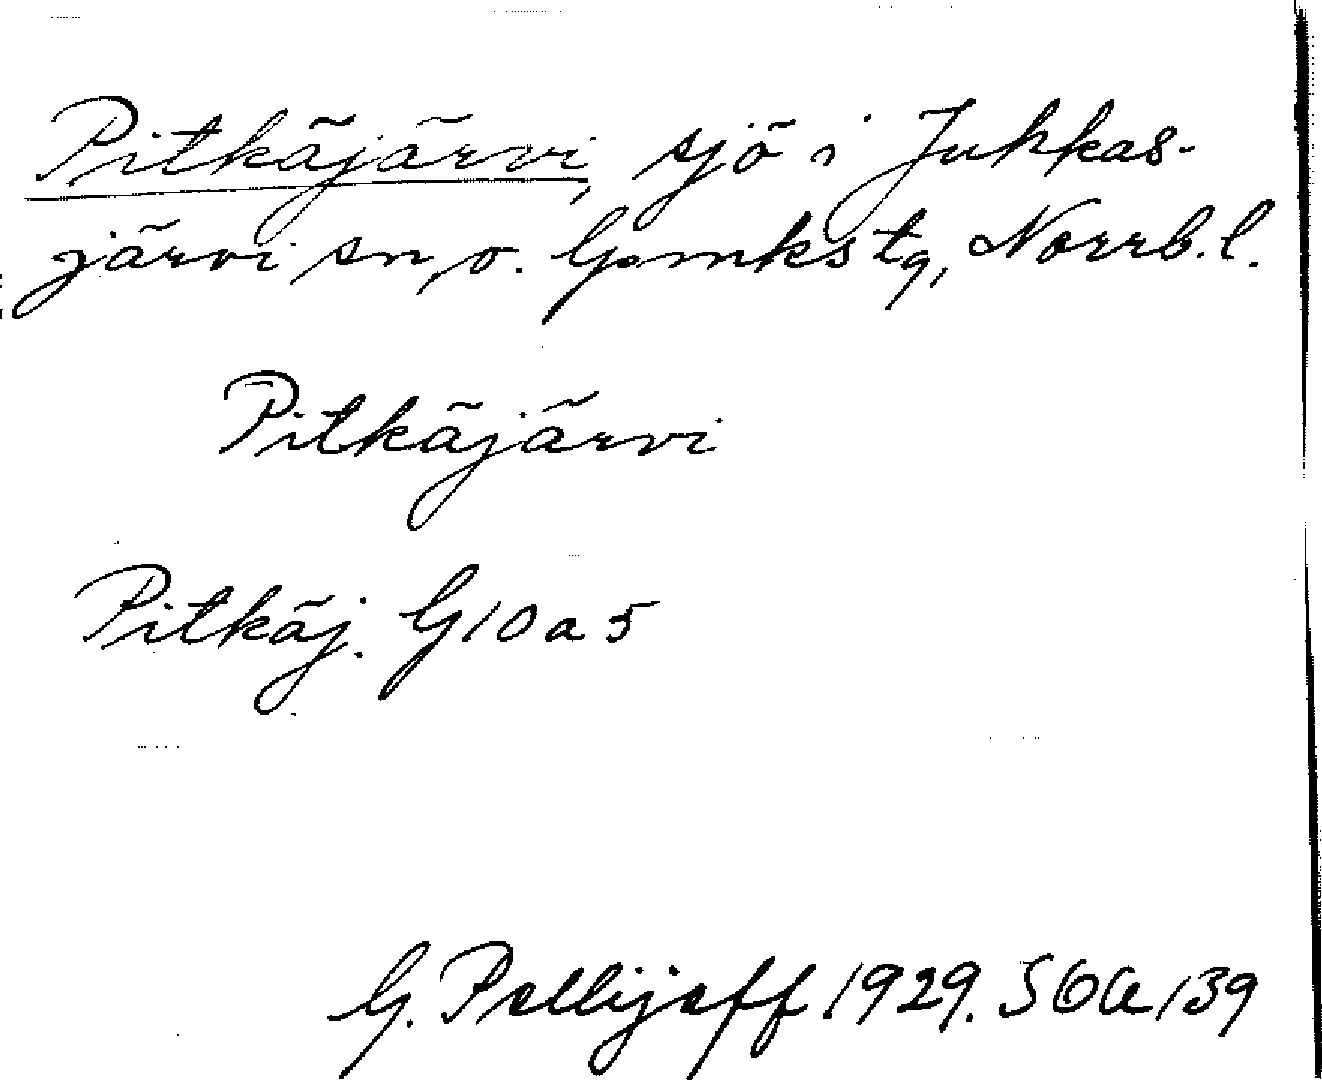 Pitkäjärvi, sjö i Jukkas-
järvi sn, o. lpmkstg, Norrb. l.
Pitkäjärvi
Pitkäj. G10a5
G. Pellijeff 1929. SOA 139